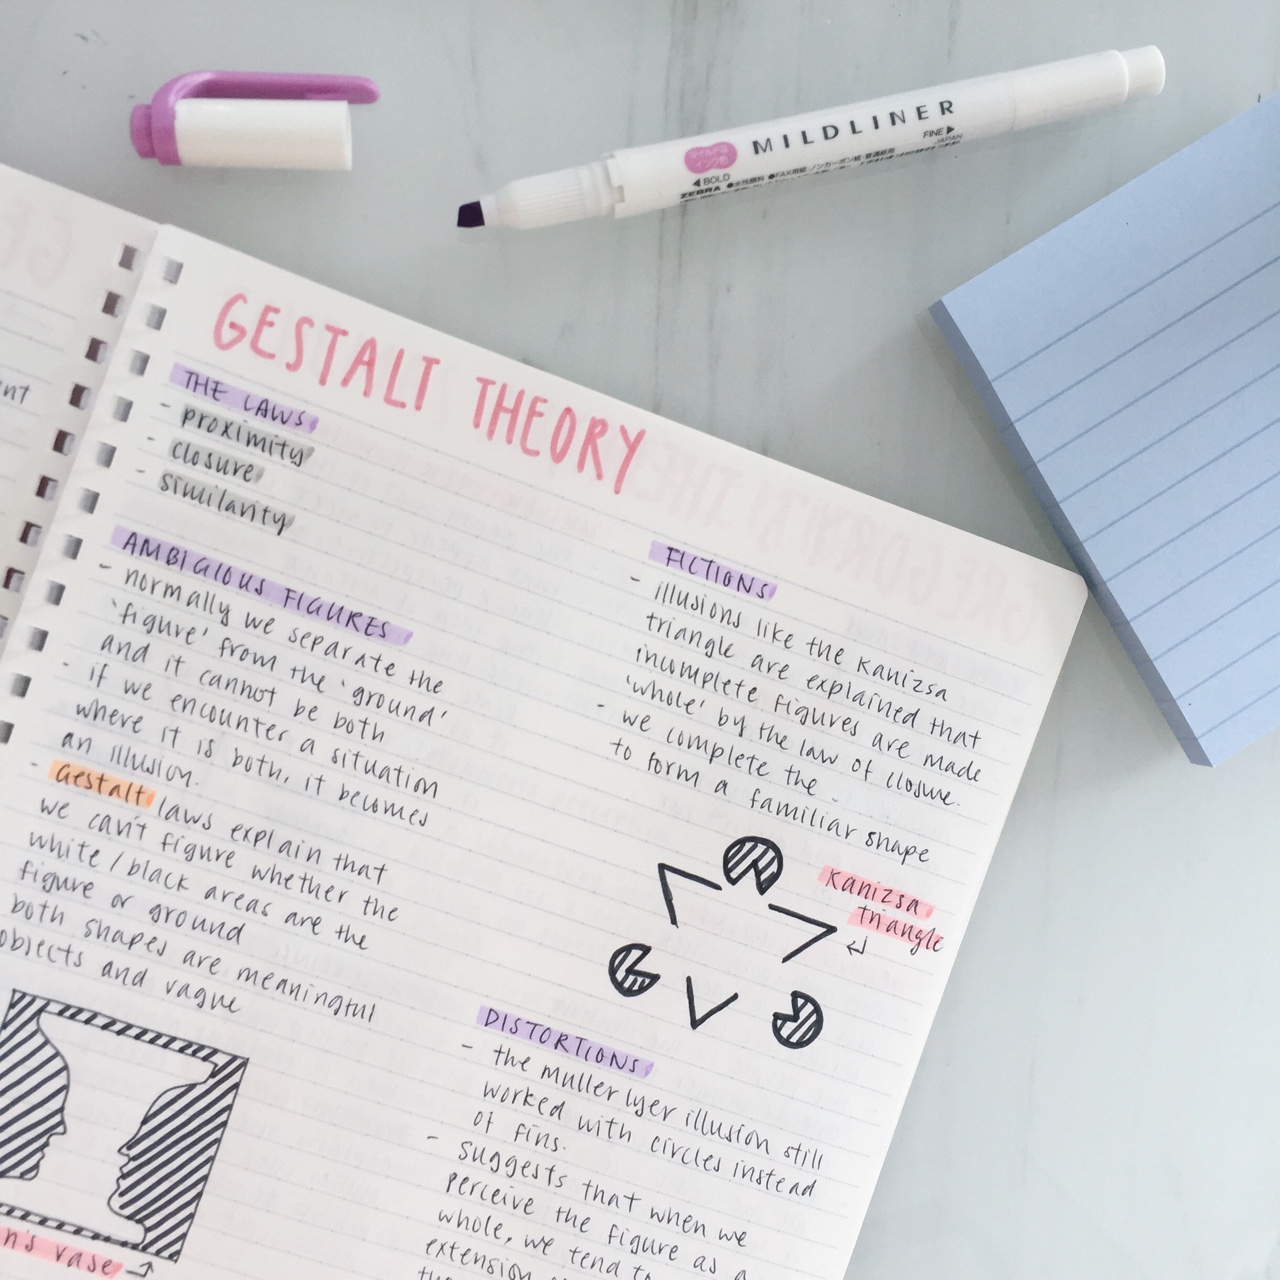 マイルドな
インク色
MILDLINER
◀ BOLD
FINE ▶
JAPAN
ZEBRA ●水性顔料 ●FAX用紙・ノンカーボン紙・普通紙用
GESTALT THEORY
THE LAWS
- proximity
- closure
- similarity
AMBIGIOUS FIGURES
- normally we separate the
'figure' from the 'ground'
and it cannot be both
- if we encounter a situation
where it is both, it becomes
an illusion.
- Gestalt laws explain that
we can't figure whether the
white / black areas are the
figure or ground
both shapes are meaningful
objects and vague
n's vase
FICTIONS
- illusions like the Kanizsa
triangle are explained that
incomplete figures are made
'whole' by the law of closure.
- we complete the
to form a familiar shape
Kanizsa
triangle
DISTORTIONS
- the muller lyer illusion still
worked with circles instead
of fins.
- suggests that when we
perceive the figure as a
whole, we tend to
extension